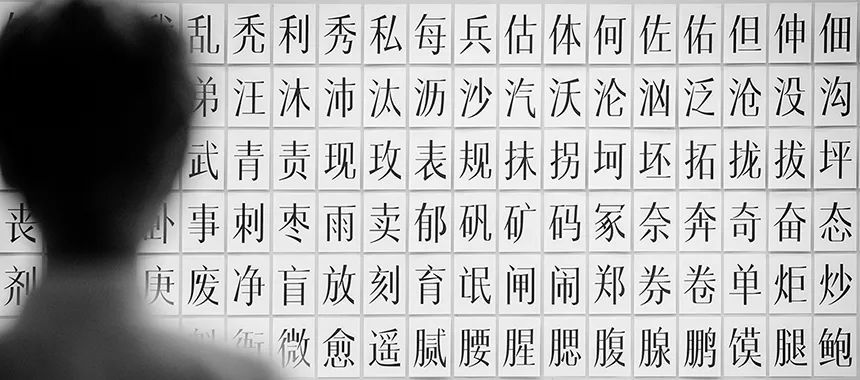 乱秃利秀私每兵估体何佐佑但伸佃
弟汪沐沛汰沥沙汽沃沦汹泛沧没沟
武青责现玫表规抹拐坷坯拓拢拔坪
丧卧事刺枣雨卖郁矾矿码冢奈奔奇奋态
剂庚废净盲放刻育氓闸闹郑券卷单炬炒
衙微愈遥腻腰腥腮腹腺鹏馍腿鲍